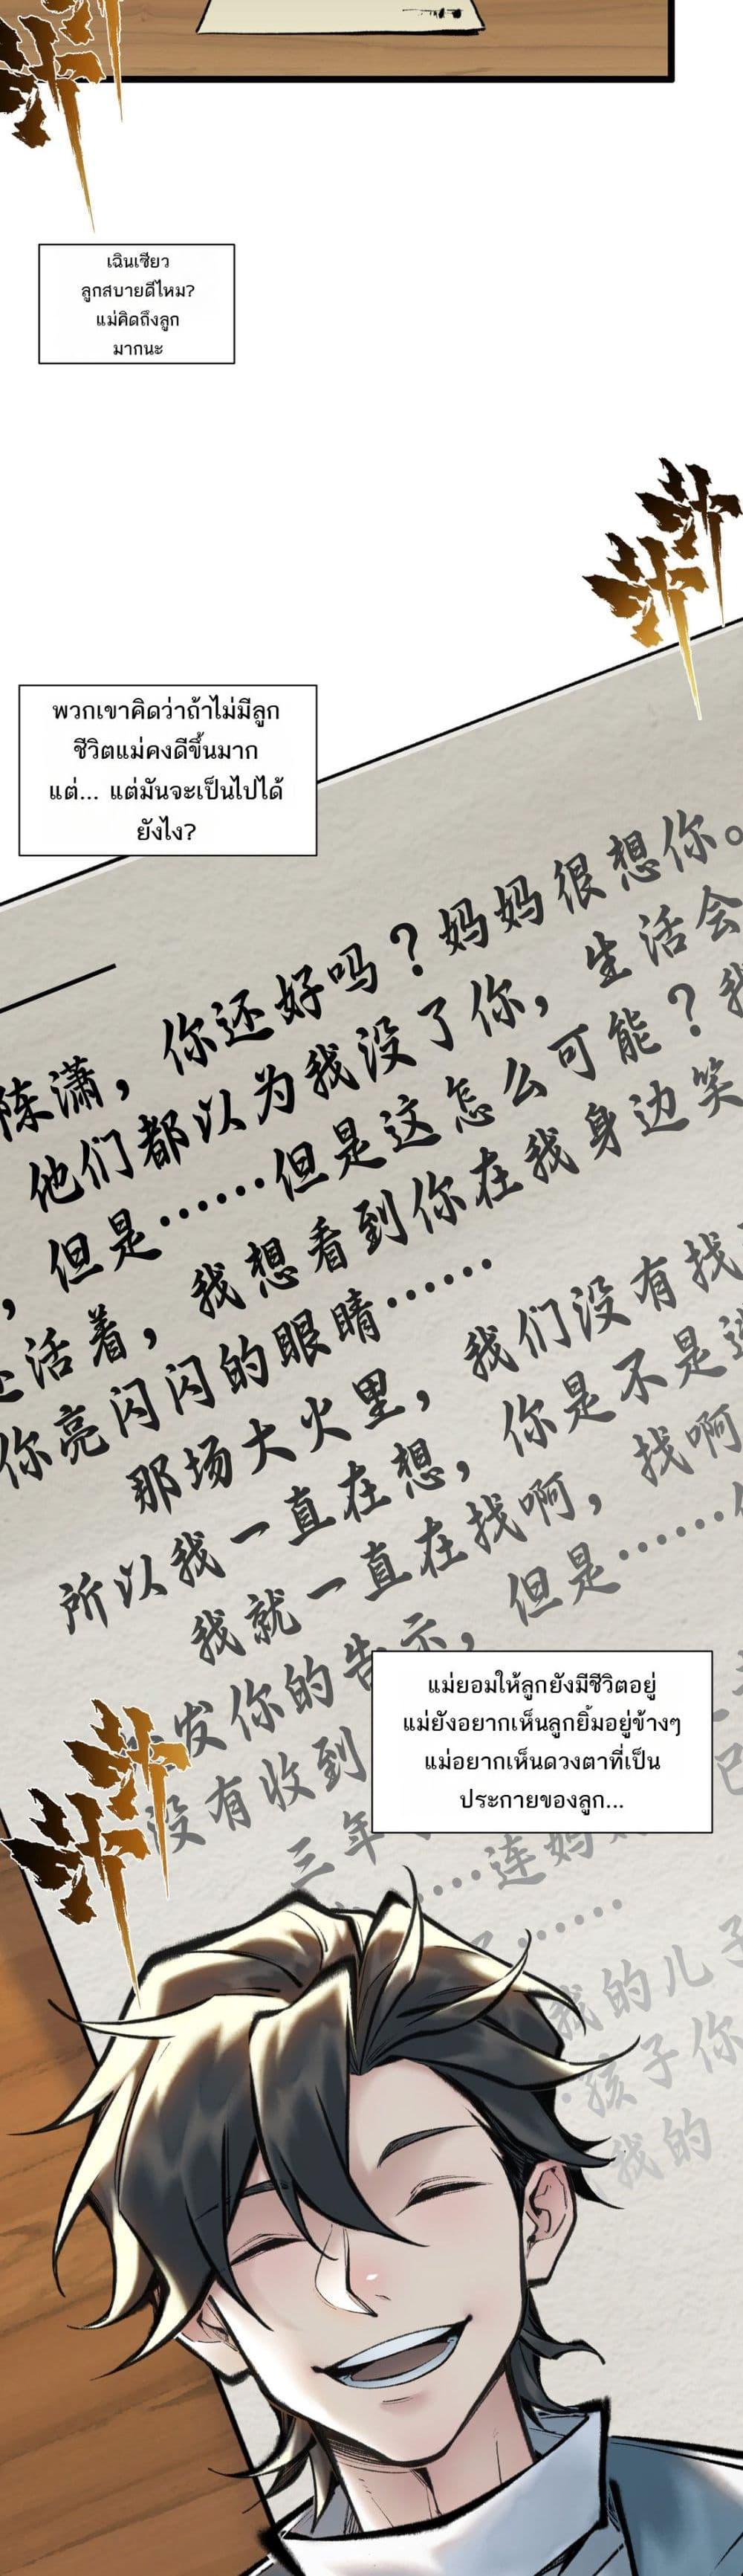 เฉินเซียว
ลูกสบายดีไหม?
แม่คิดถึงลูก
มากนะ
沙
沙
沙
พวกเขาคิดว่าถ้าไม่มีลูก
ชีวิตแม่คงดีขึ้นมาก
แต่... แต่มันจะเป็นไปได้
ยังไง?
陈潇，你还好吗？妈妈很想你。
他们都以为我没了你，生活会
，但是……但是这怎么可能？我
活着，我想看到你在我身边笑
你亮闪闪的眼睛……
那场大火里，我们没有找
所以我一直在想，你是不是
我就一直在找啊，找啊
发你的告示，但是……
没有收到
แม่ยอมให้ลูกยังมีชีวิตอยู่
แม่ยังอยากเห็นลูกยิ้มอยู่ข้างๆ
แม่อยากเห็นดวงตาที่เป็น
ประกายของลูก...
三年
……连妈
……
我的儿子
孩子你
我的